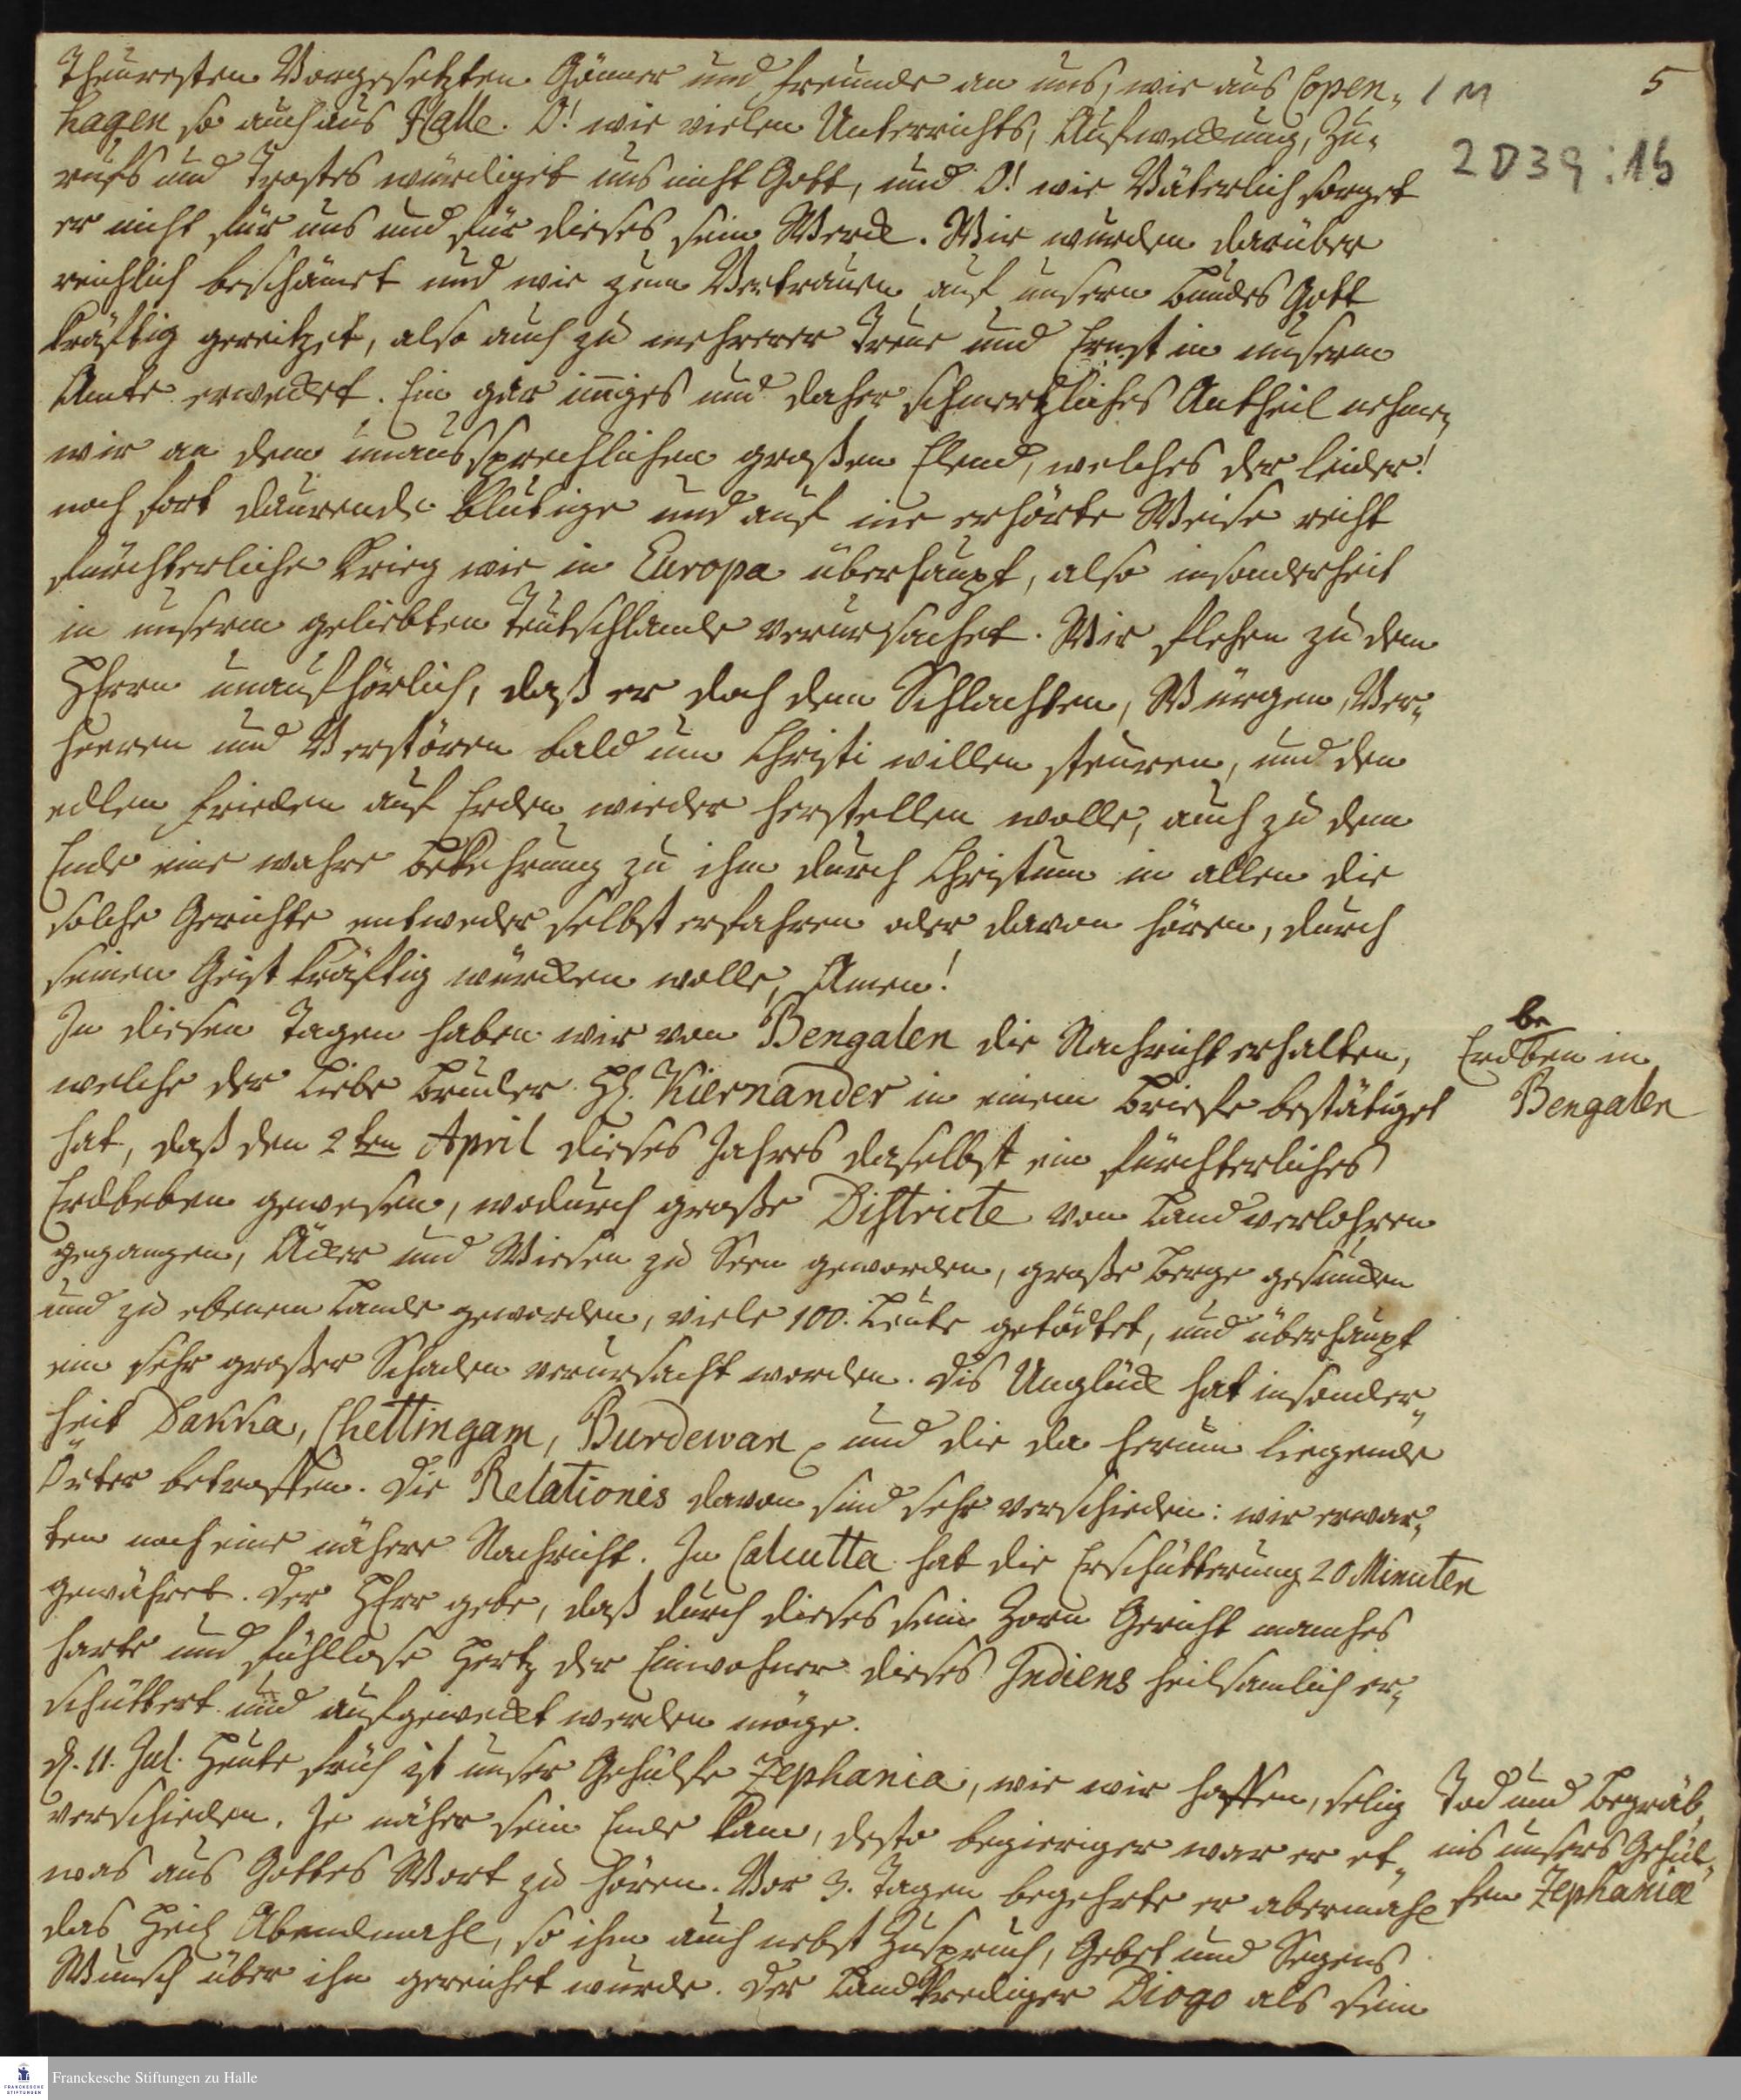 Theuresten Vorgesetzten Gönner und Freunde an uns, wie aus Copen-
hagen so auch aus Halle. O! wie vielen Unterrichts, Aufweckung, Zu-
rufs und Trostes würdiget uns nicht Gott, und O! wie Väterlich sorget
er nicht für uns und für dieses sein Werck. Wir wurden darüber
reichlich beschämet und wie zum Vertrauen auf unsern Bundes Gott
kräftig gereitzet, also auch zu mehrerer Treue und Ernst in unserm
Amte erwecket. Ein gar inniges und daher schmertzliches Antheil nehmen
wir an dem unaussprechlichen großen Elend, welches der leider!
noch fort daurende blutige und auf nie erhörte Weise recht
fürchterliche Krieg wie in Europa überhaupt, also insonderheit
in unserm geliebten Teutschlande verursachet. Wir flehen zu dem
HErrn unaufhörlich, daß er doch dem Schlachten, Würgen, Ver-
heeren und Verstören bald um Christi willen steuren, und den
edlen Frieden auf Erden wieder herstellen wolle, auch zu dem
Ende eine wahre Bekehrung zu ihm durch Christum in allen die
solche Gerichte entweder selbst erfahren oder davon hören, durch
seinen Geist kräftig würcken wolle, Amen!
In diesen Tagen haben wir von Bengalen die Nachricht erhalten,
welche der Liebe Bruder H. Kiernander in einem Briefe bestätiget
hat, daß den 2ten April dieses Jahres daselbst ein fürchterliches
Erdbeben gewesen, wodurch große Districte von Land verlohren
gegangen, Äcker und Wiesen zu Seen geworden, große Berge gesuncken
und zu ebenem Lande geworden, viele 100. Leute getödtet, und überhaupt
ein sehr großer Schaden verursacht worden. Dis Unglück hat insonder-
heit Dakka, Chettingam, Burdewan, und die da herum liegende
Örter betroffen. Die Relationes davon sind sehr verschieden: wir erwar-
ten noch eine nähere Nachricht. In Calcutta hat die Erschütterung 20 Minuten
gewähret. Der HErr gebe, daß durch dieses sein Zorn Gericht manches
harte und fühllose Hertz der Einwohner dieses Indiens heilsamlich er-
schüttert und aufgeweckt werden möge.
d. 11. Jul. Heute früh ist unser Gehülfe Zephania, wie wir hoffen, selig
verschieden. Je näher sein Ende kam, desto begieriger war er et-
was aus Gottes Wort zu hören. Vor 3. Tagen begehrte er abermahl
das Heil. Abendmahl, so ihm auch nebst Zuspruch, Gebet und Segens
Wunsch über ihn gereichet wurde. Der Land Prediger Diogo als sein
1 M
5
2 D 39 : 15
be
Erdben in
Bengalen
Tod und Begräb-
nis unsers Gehül-
fen Zephaniae
Franckesche Stiftungen zu Halle
FRANCKESCHE
STIFTUNGEN